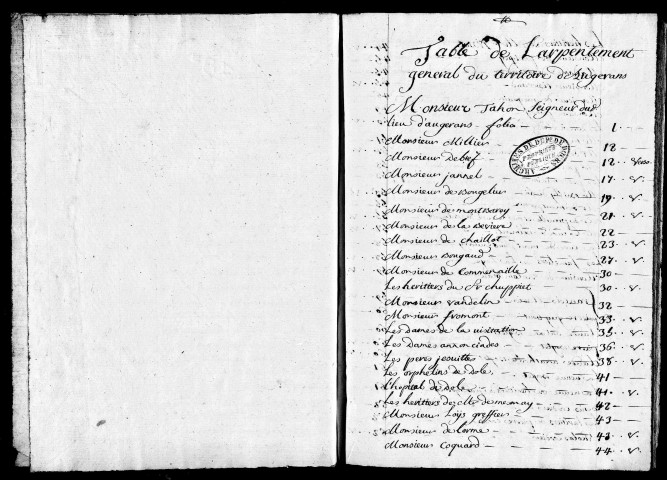 Table de Larpentement
general du territoire d'augerans
Monsieur Jahon Seigneur dud
lieu d'augerans folio 1
Monsieur Millier 12
Monsieur Debief 12 verso
Monsieur jannel 17 v.
Monsieur de 19 v.
Monsieur de montbarey 21 v.
Monsieur de la 22
Monsieur de chaillot 23 v.
Monsieur Bougaud 27 v.
Monsieur de Commenaille 30
Les heritiers du Sr chuppiet 30 v.
Monsieur vandelin 32
Monsieur fromont 33 v.
Les dames de la visitation 35 v.
Les Dames annonciades 36 v.
Les peres jesuittes 38 v.
Les orphelins de dole 41
L'hopital de dole 41 v.
Les heritiers de Mr de mesmay 42
Monsieur Loÿs greffier 43
Monsieur delorme 43 v.
Monsieur Coquard 44 v.
ARCHIVES DU DEPt DU DOUBS
PROPRIÉTÉ PUBLIQUE